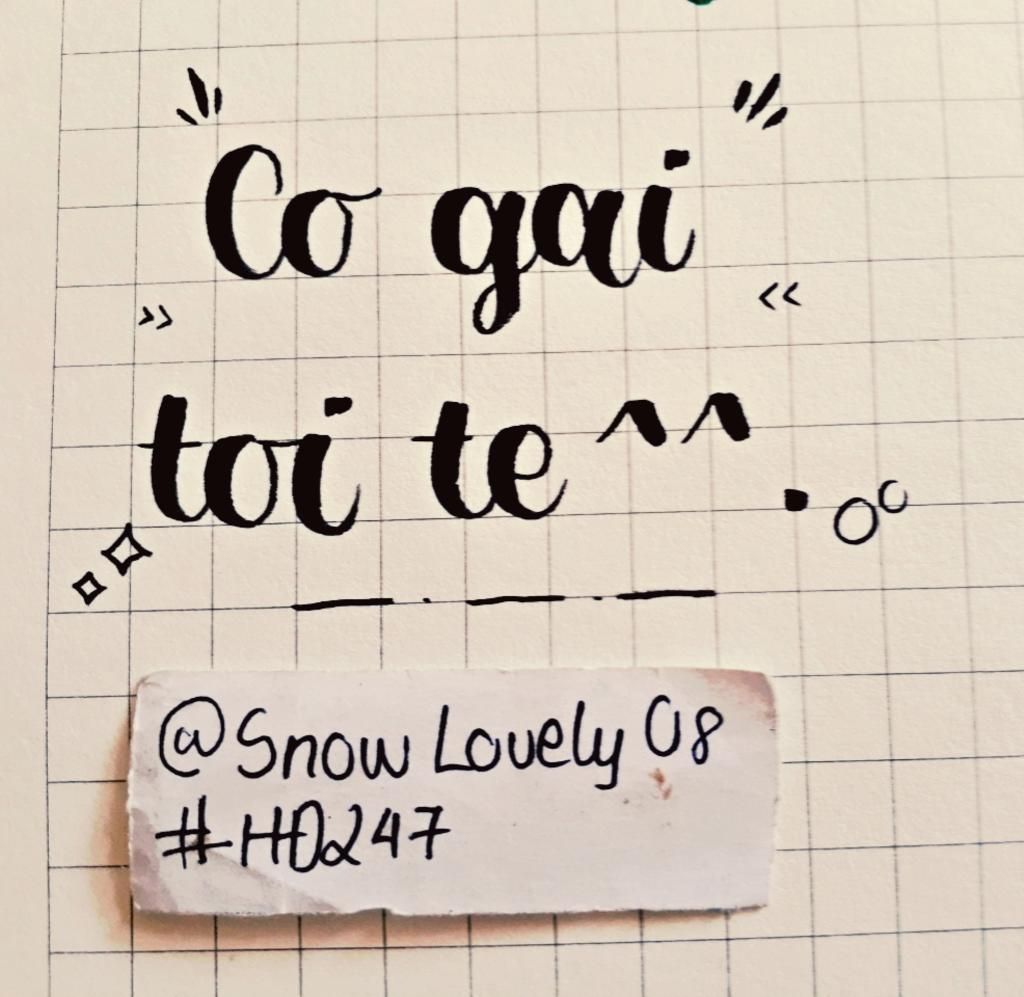 Co gai
toi te ^^.
@Snow Lovely 08
#HD247